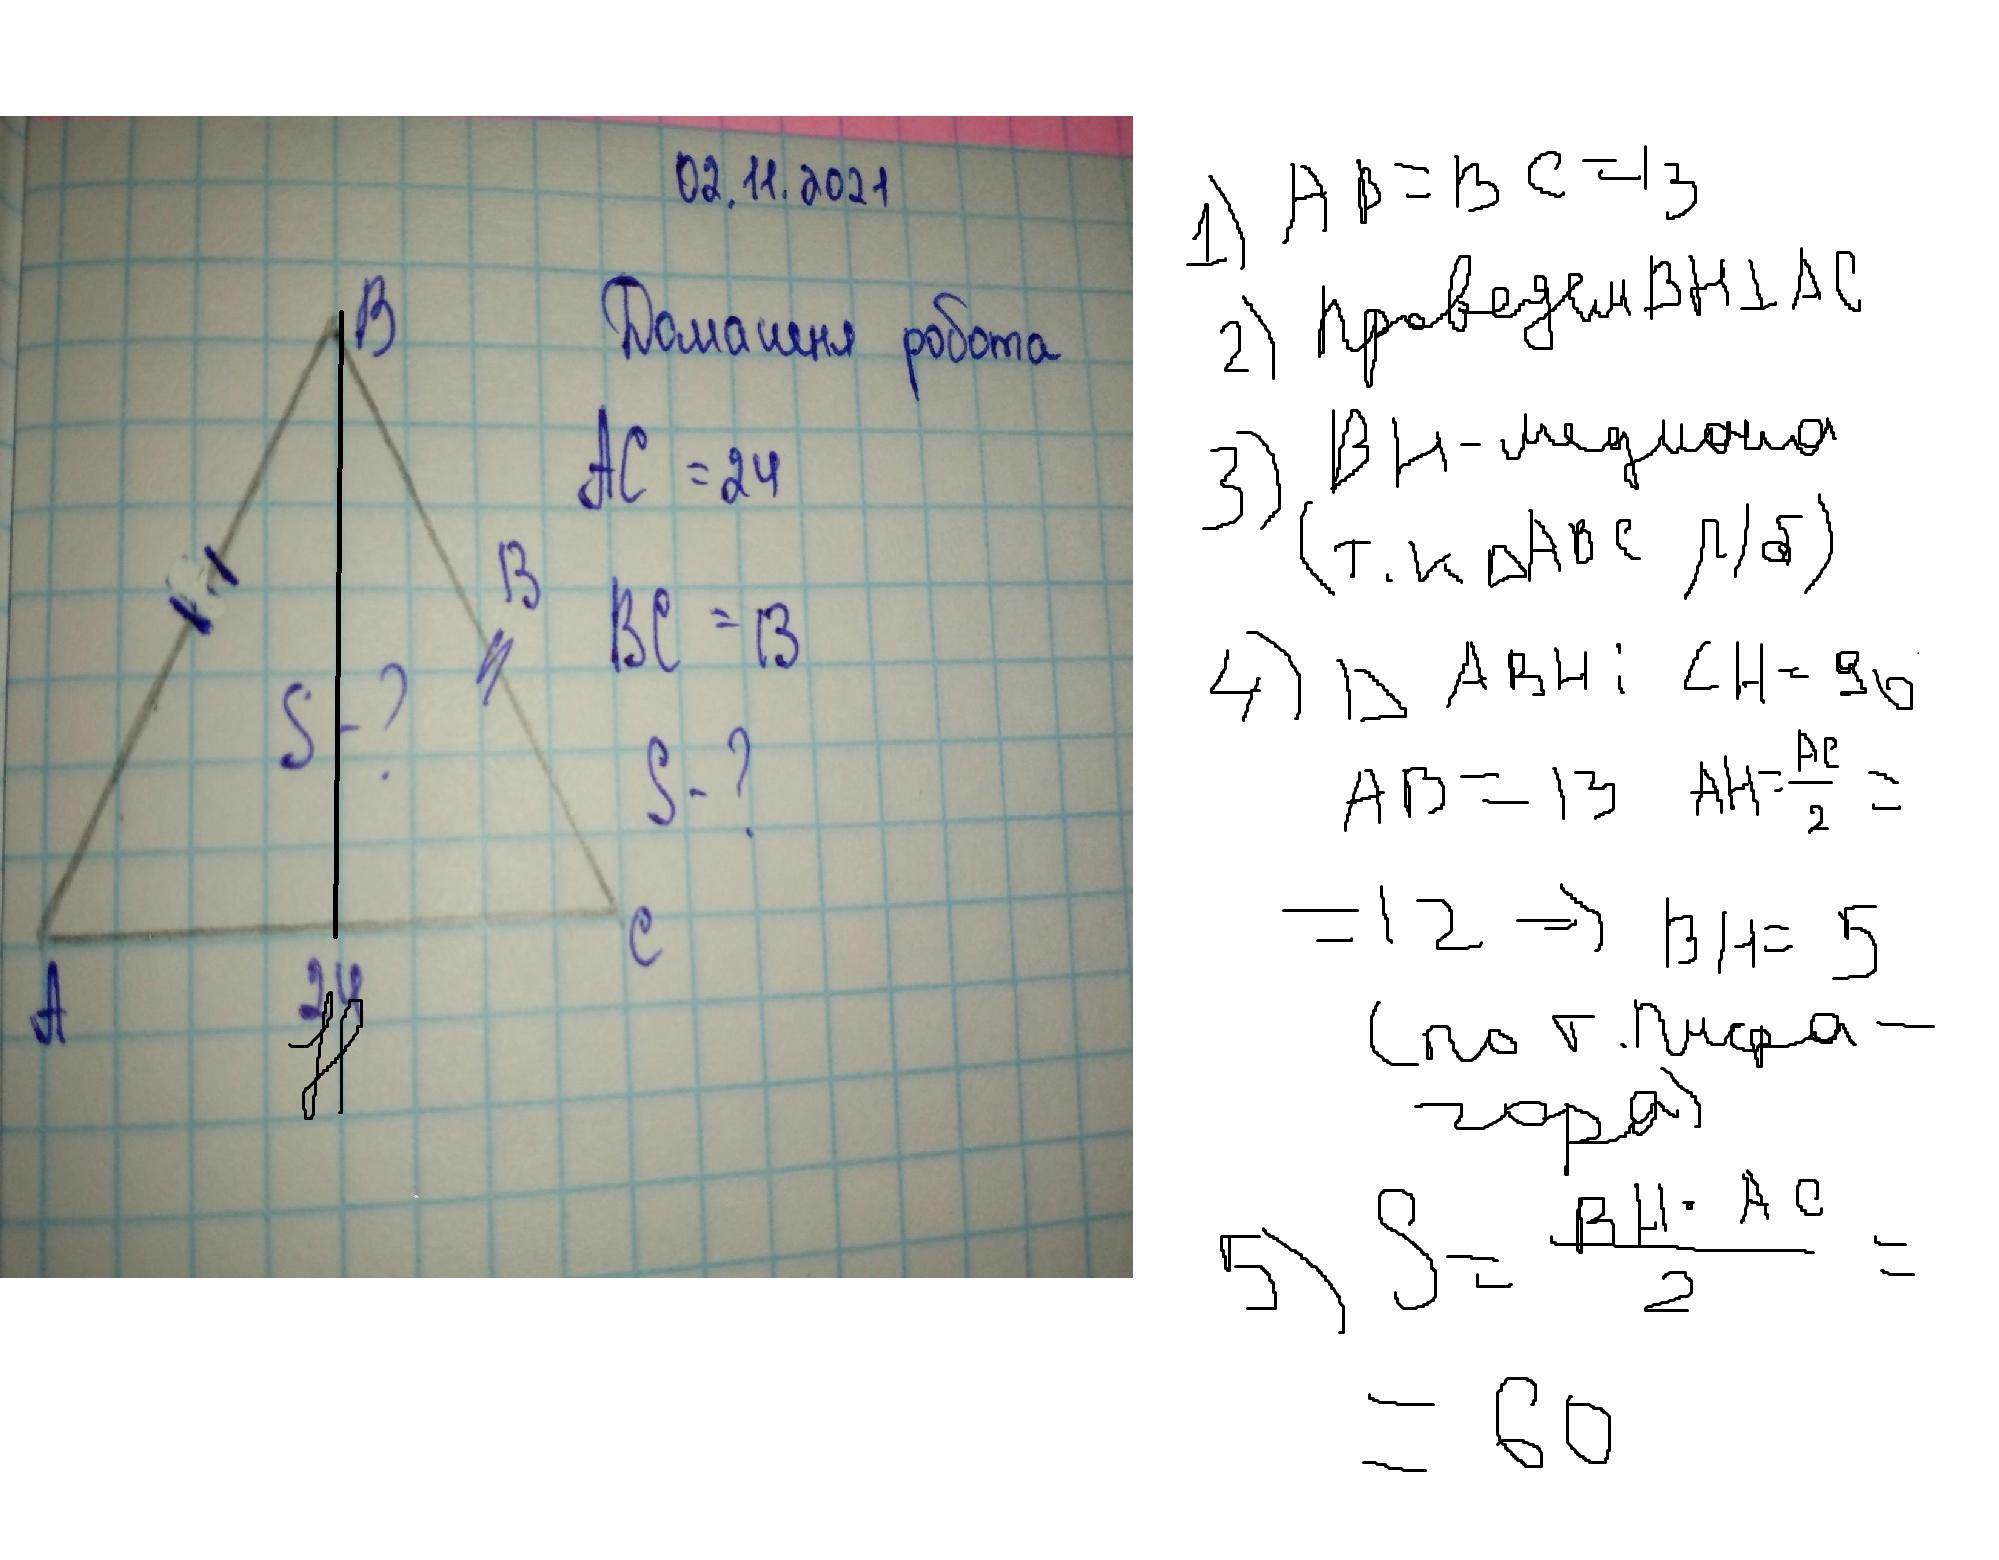 02.11.2021
Домашня робота
B
AC = 24
BC = 13
13
S - ?
S - ?
A
24
C
H
1) AB = BC = 13
2) Проведем BH ⊥ AC
3) BH - медиана
(т.к △ABC р/б)
4) △ ABH: ∠H = 90
AB = 13 AH = AC/2 =
= 12 ⇒ BH = 5
(по т. Пифа-
гора)
5) S = BH · AC / 2 =
= 60